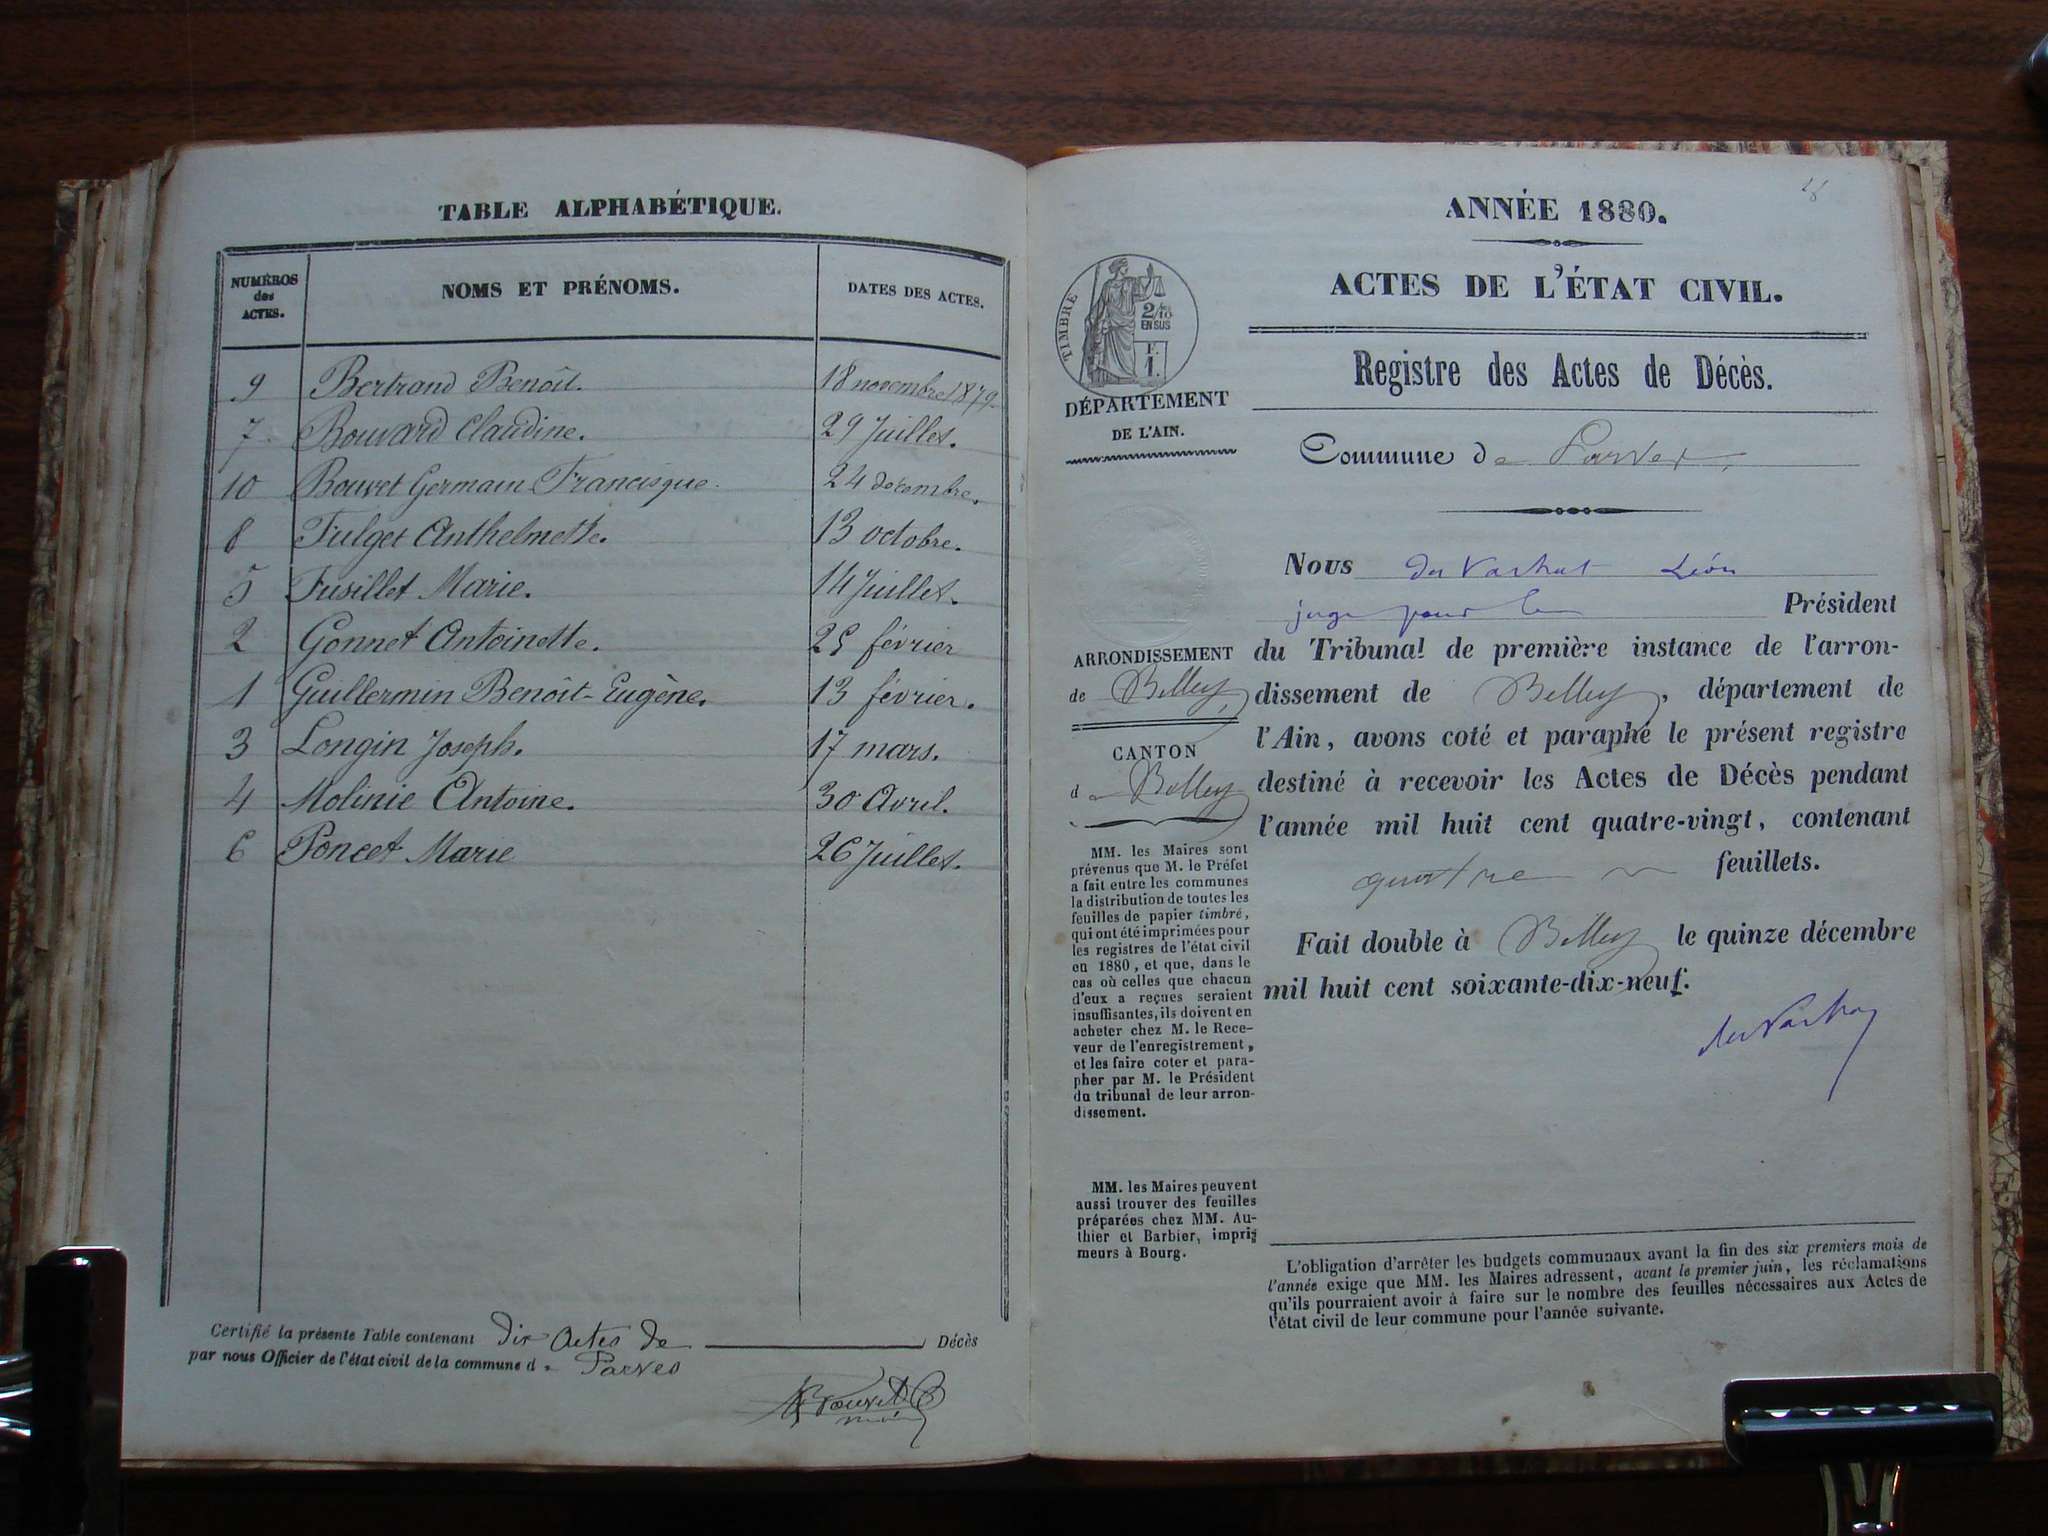 TABLE ALPHABÉTIQUE.
NUMÉROS des ACTES. NOMS ET PRÉNOMS. DATES DES ACTES.
9 Bertrand Benoît. 18 novembre 1879.
7 Bouvard Claudine. 29 Juillet.
10 Bouvet Germain Francisque. 24 décembre.
8 Fulget Anthelmette. 13 octobre.
5 Fusillet Marie. 14 Juillet.
2 Gonnet Antoinette. 25 février
1 Guillermin Benoît-Eugène. 13 février.
3 Longin Joseph. 17 mars.
4 Molinie Antoine. 30 Avril.
6 Poncet Marie 26 Juillet.
Certifié la présente Table contenant dix actes de Décès
par nous Officier de l'état civil de la commune de Parves
ANNÉE 1880.
ACTES DE L'ÉTAT CIVIL.
TIMBRE
2/10
EN SUS
F.
1.
DÉPARTEMENT
DE L'AIN.
ARRONDISSEMENT
de Belley,
CANTON
de Belley
MM. les Maires sont
prévenus que M. le Préfet
a fait entre les communes
la distribution de toutes les
feuilles de papier timbré,
qui ont été imprimées pour
les registres de l'état civil
en 1880, et que, dans le
cas où celles que chacun
d'eux a reçues seraient
insuffisantes, ils doivent en
acheter chez M. le Rece-
veur de l'enregistrement,
et les faire coter et para-
pher par M. le Président
du tribunal de leur arron-
dissement.
MM. les Maires peuvent
aussi trouver des feuilles
préparées chez MM. Au-
thier et Barbier, impri-
meurs à Bourg.
Registre des Actes de Décès.
Commune de Parves,
Nous Léon
juge pour le Président
du Tribunal de première instance de l'arron-
dissement de Belley, département de
l'Ain, avons coté et paraphé le présent registre
destiné à recevoir les Actes de Décès pendant
l'année mil huit cent quatre-vingt, contenant
quatre feuillets.
Fait double à Belley le quinze décembre
mil huit cent soixante-dix-neuf.
L'obligation d'arrêter les budgets communaux avant la fin des six premiers mois de
l'année exige que MM. les Maires adressent, avant le premier juin, les réclamations
qu'ils pourraient avoir à faire sur le nombre des feuilles nécessaires aux Actes de
l'état civil de leur commune pour l'année suivante.